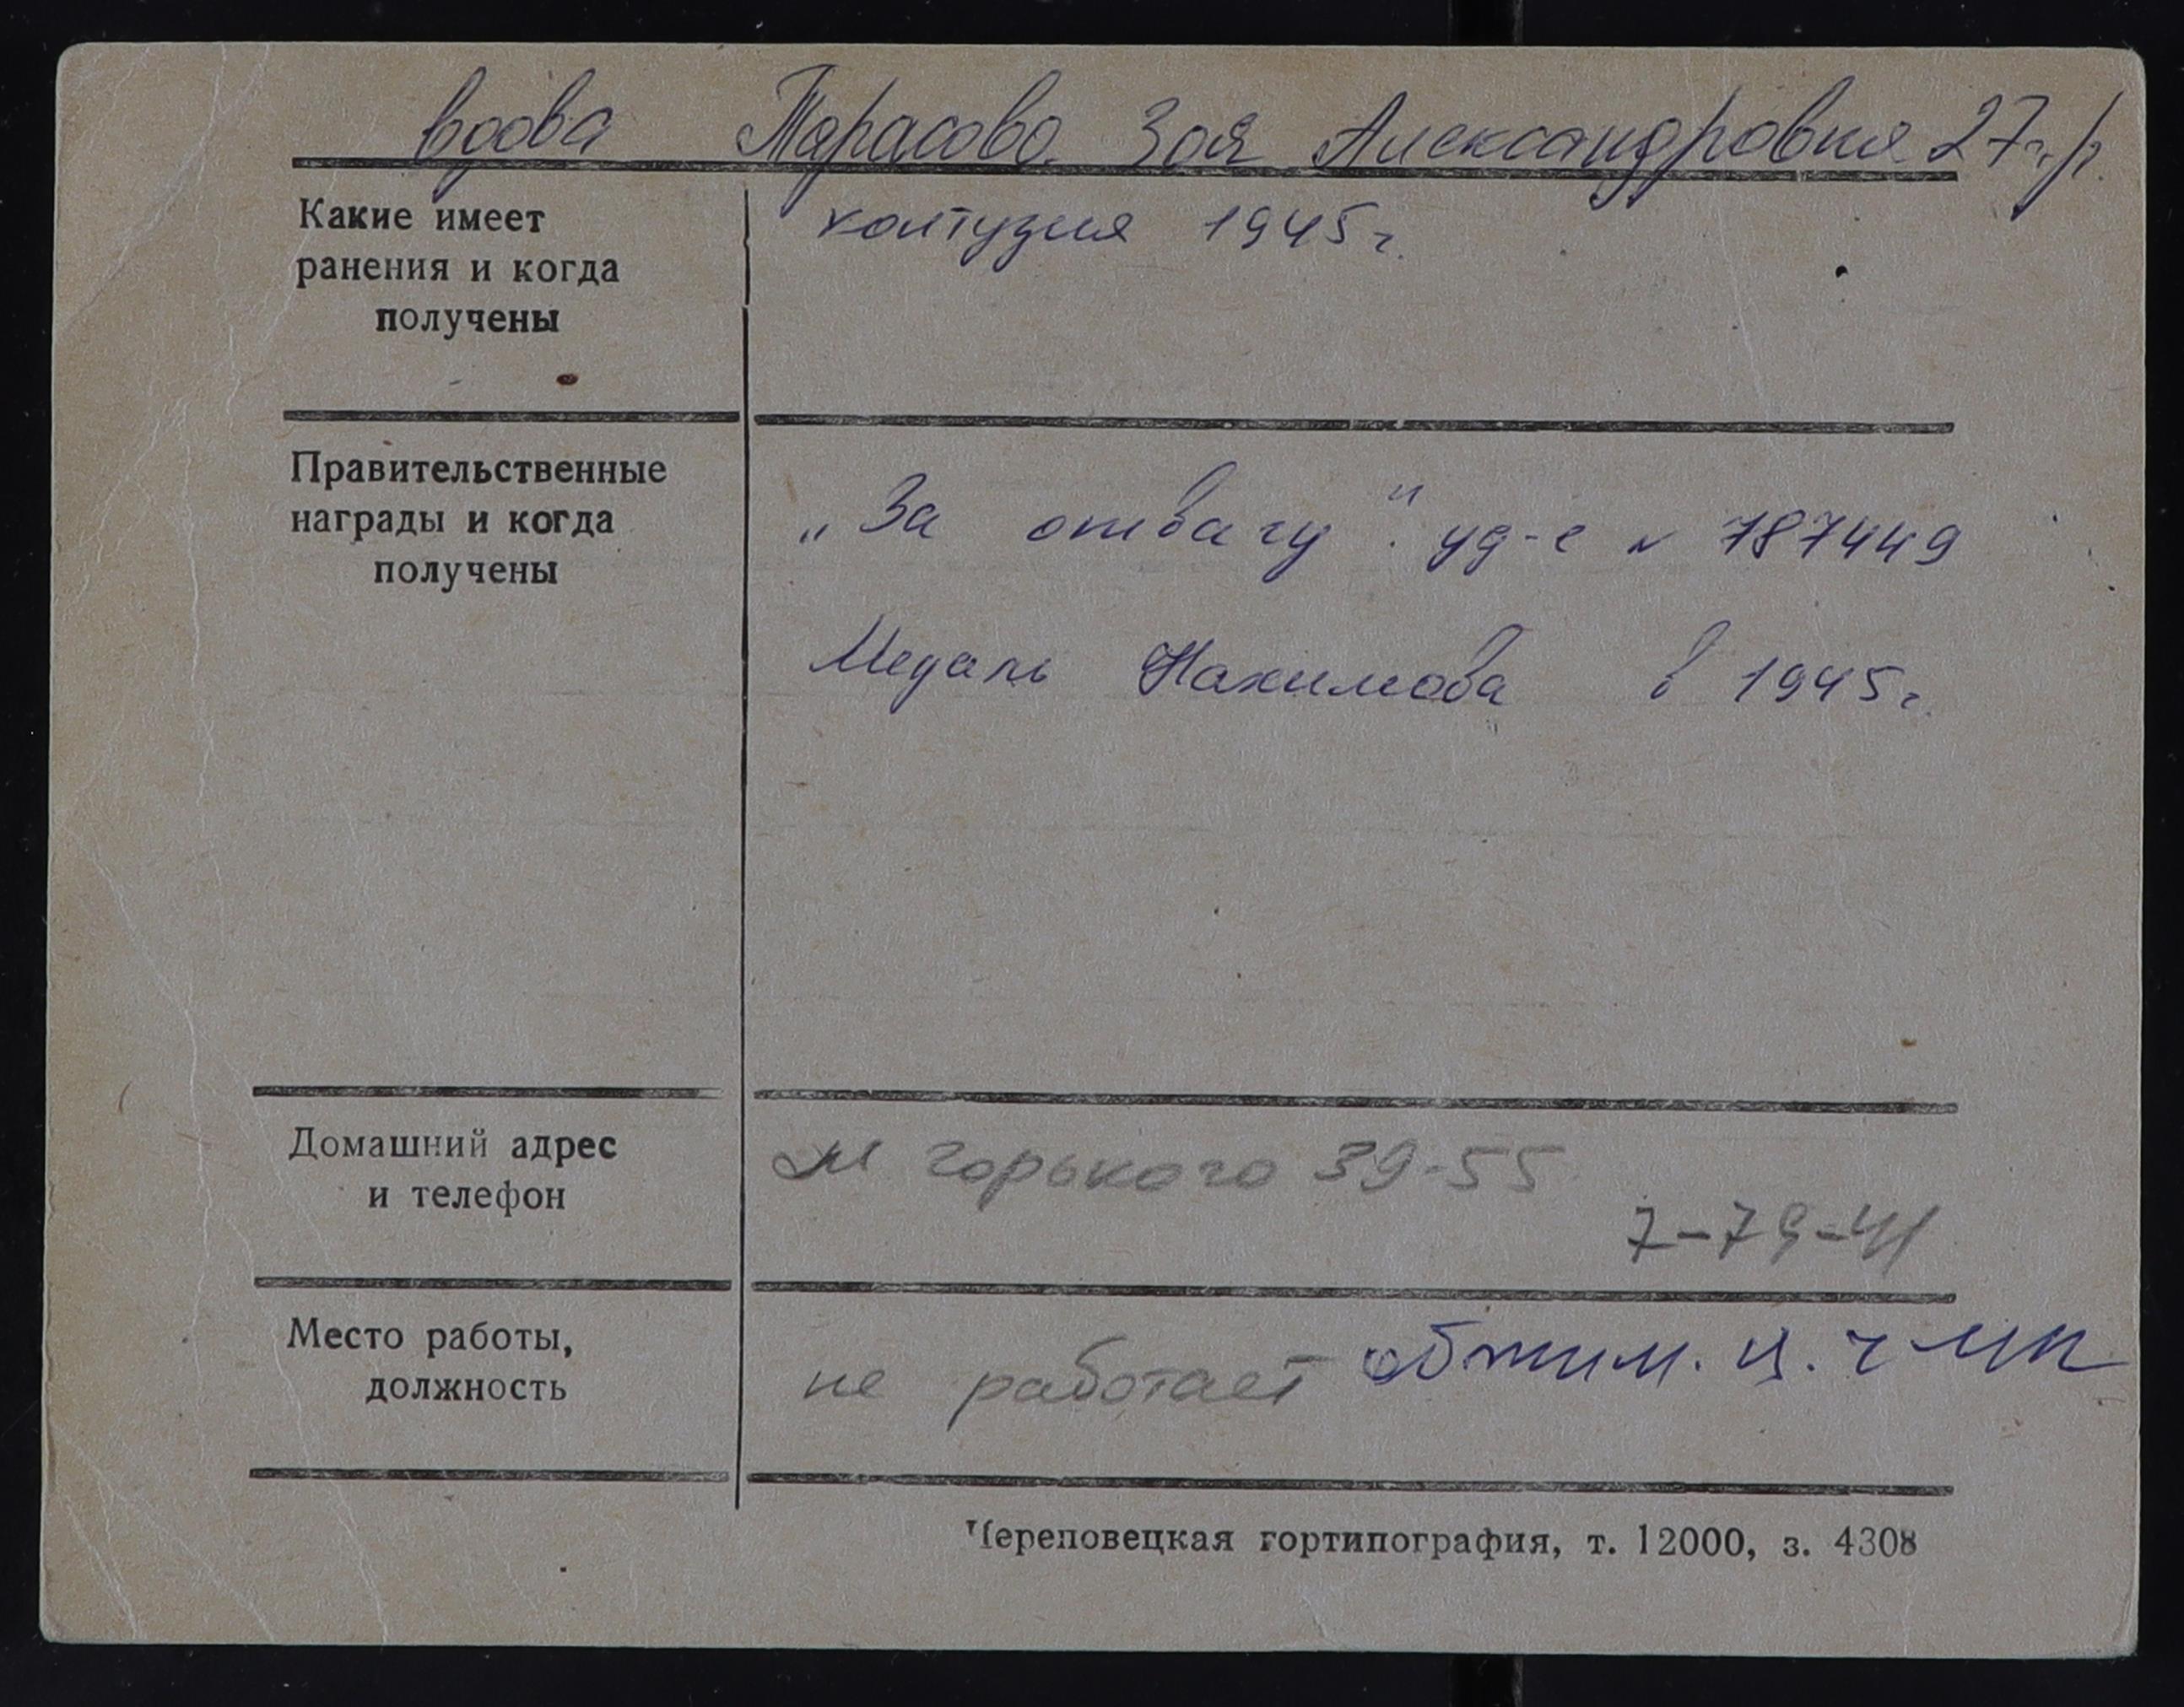 вдова Тарасова Зоя Александровна 27 г/р.
Какие имеет
ранения и когда
получены
контузия 1945 г.
Правительственные
награды и когда
получены
„За отвагу". уд-е № 787449
Медаль Нахимова в 1945 г.
Домашний адрес
и телефон
М Горького 39-55
7-79-41
Место работы,
должность
не работает обжим. ц. ЧМК
Череповецкая гортипография, т. 12000, з. 4308